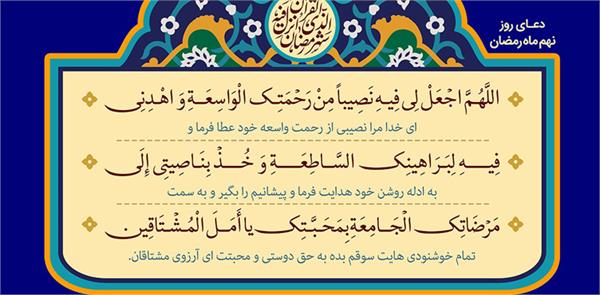 دعای روز
نهم ماه رمضان
شهر رمضان الذی انزل فیه القرآن
اللَّهُمَّ اجْعَلْ لِی فِیهِ نَصِیباً مِنْ رَحْمَتِکَ الْوَاسِعَةِ وَ اهْدِنِی
ای خدا مرا نصیبی از رحمت واسعه خود عطا فرما و
فِیهِ لِبَرَاهِینِکَ السَّاطِعَةِ وَ خُذْ بِنَاصِیَتِی إِلَی
به ادله روشن خود هدایت فرما و پیشانیم را بگیر و به سمت
مَرْضَاتِکَ الْجَامِعَةِ بِمَحَبَّتِکَ یَا أَمَلَ الْمُشْتَاقِینَ
تمام خوشنودی هایت سوقم بده به حق دوستی و محبتت ای آرزوی مشتاقان.